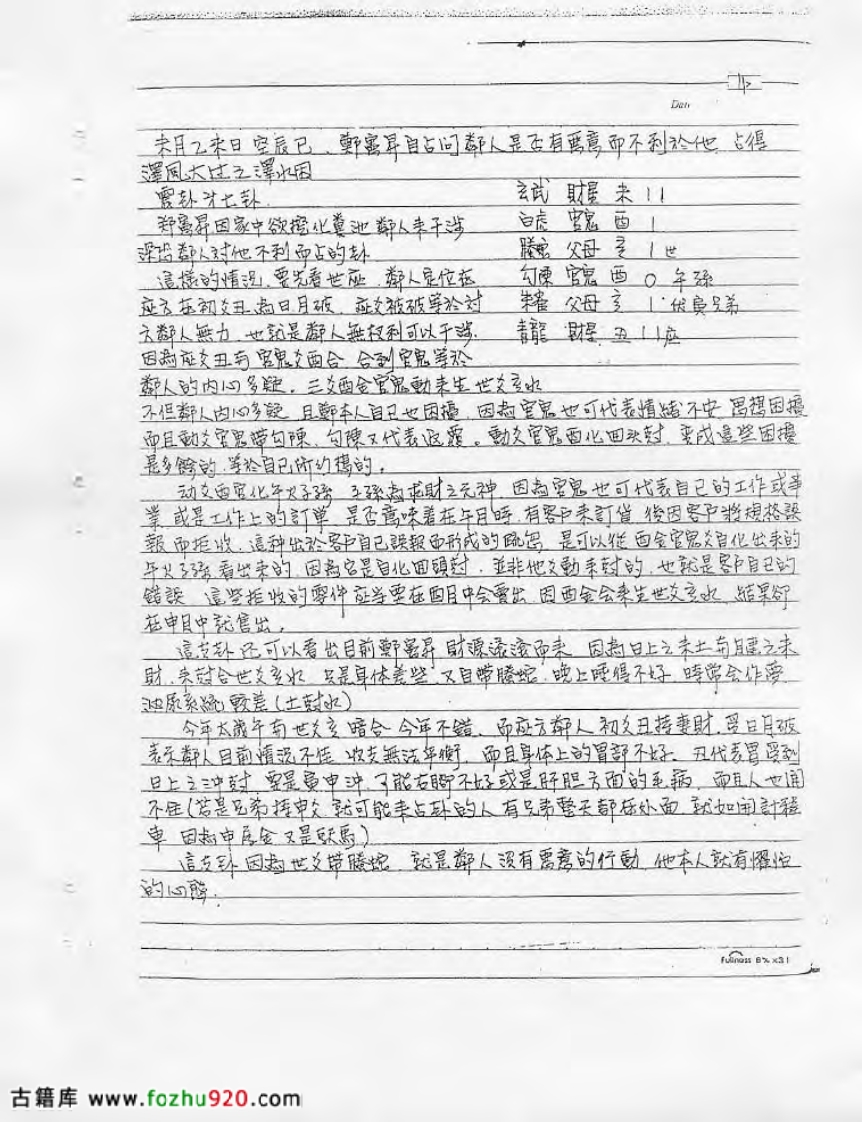 Date
未月乙未日 空辰巳 鄭富昇自占問鄰人是否有惡意而不利於他 占得
澤風大过之澤水困
震卦 玄武 財星 未 11
鄭富昇因家中欲 化糞池 鄰人來干涉 白虎 官鬼 酉 1
深怕鄰人对他不利而占的卦 螣蛇 父母 亥 1 世
這樣的情況,要先看世应,鄰人定位在 勾陳 官鬼 酉 0 午孫
应方在初爻丑為日月破,应爻被破等於对 朱雀 父母 亥 1 伏寅兄弟
方鄰人無力,也就是鄰人無权利可以干涉. 青龍 財星 丑 11 应
因為应爻丑与官鬼爻酉合,合到官鬼等於
鄰人的内心多疑。三爻酉金官鬼動來生世爻亥水
不但鄰人内心多疑 且鄭本人自己也困擾,因為官鬼也可代表情緒不安 思想困擾
而且動爻官鬼帶勾陳,勾陳又代表 。動爻官鬼酉化回头尅,變成這些困擾
是多餘的,等於自己所幻想的。
动爻酉官化午火子孫 子孫為求財之元神 因為官鬼也可代表自己的工作或事
業 或是工作上的訂单,是否意味着在午月時,有客戶來訂貨 後因客戶將規格誤
報而拒收,這种出於客戶自己誤報而形成的 ,是可以從酉金官鬼爻自化出來的
午火子孫看出來的,因為它是自化回頭尅,並非他爻動來尅的,也就是客戶自己的
錯誤 這些拒收的零件应当要在酉月中會賣出,因酉金會來生世爻亥水,結果卻
在申月中就售出。
這支卦还可以看出目前鄭富昇財源滾滾而來 因為日上之未土与月建之未
財,來尅合世爻亥水 只是身体差些,又自帶螣蛇,晚上睡得不好,時常会作夢
泌尿系統較差(土尅水)
今年太歲午与世爻亥暗合 今年不錯,而应方鄰人初爻丑持妻財,受日月破
表示鄰人目前情況不佳 收支無法平衡,而且身体上的胃部不好 丑代表胃受到
日上之沖尅,要是寅申沖,可能右腳不好或是肝胆方面的毛病,而且人也閒
不住(若是兄弟持申爻 就可能來占卦的人有兄弟整天都在外面,就如開計程
車 因為申屬金又是馭馬)
這支卦因為世爻帶螣蛇 就是鄰人沒有惡意的行動 他本人就有懼怕
的心態.
Fullness
古籍库 www.fozhu920.com